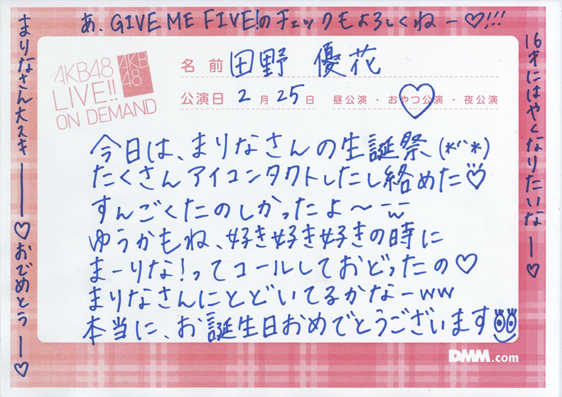 あ、GIVE ME FIVE!のチェックもよろしくねー♡!!!
まりなさん大スキー♡おでめとうー♡
16才にはやくなりたいなー♡
AKB48
LIVE!!
ON DEMAND
AKB
48
名前 田野 優花
公演日 2月25日 昼公演・おやつ公演・夜公演
今日は、まりなさんの生誕祭(*´`*)
たくさんアイコンタクトしたし絡めた♡
すんごくたのしかったよ〜
ゆうかもね、好き好き好きの時に
まーりな!ってコールしておどったの♡
まりなさんにとどいてるかなーww
本当に、お誕生日おめでとうございます
DMM.com